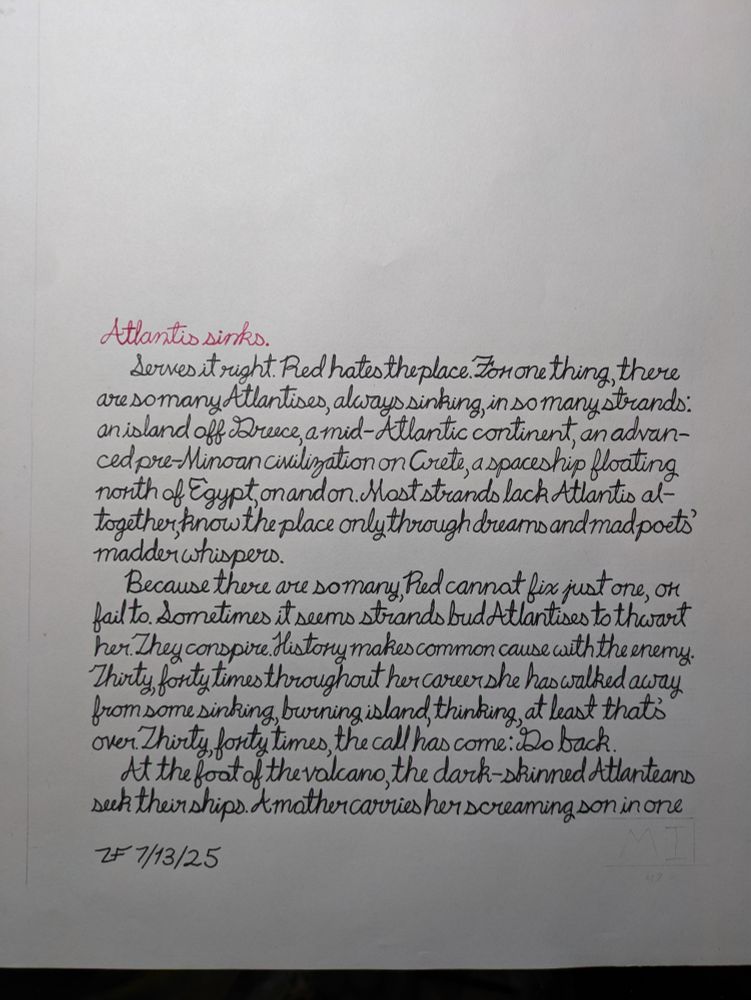 Atlantis sinks.
Serves it right. Red hates the place. For one thing, there
are so many Atlantises, always sinking, in so many strands:
an island off Greece, a mid-Atlantic continent, an advan-
ced pre-Minoan civilization on Crete, a spaceship floating
north of Egypt, on and on. Most strands lack Atlantis al-
together, know the place only through dreams and mad poets'
madder whispers.
Because there are so many, Red cannot fix just one, or
fail to. Sometimes it seems strands bud Atlantises to thwart
her. They conspire. History makes common cause with the enemy.
Thirty, forty times throughout her career she has walked away
from some sinking, burning island, thinking, at least that's
over. Thirty, forty times, the call has come: Go back.
At the foot of the volcano, the dark-skinned Atlanteans
seek their ships. A mother carries her screaming son in one
MI
ZF 7/13/25